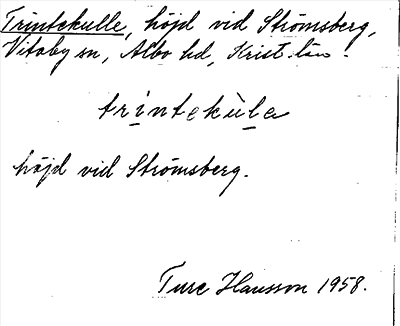 Trintekulle, höjd vid Strömsberg,
Vitaby sn, Albo hd, Krist. län.
trìntekùla
höjd vid Strömsberg.
Ture Hansson 1958.